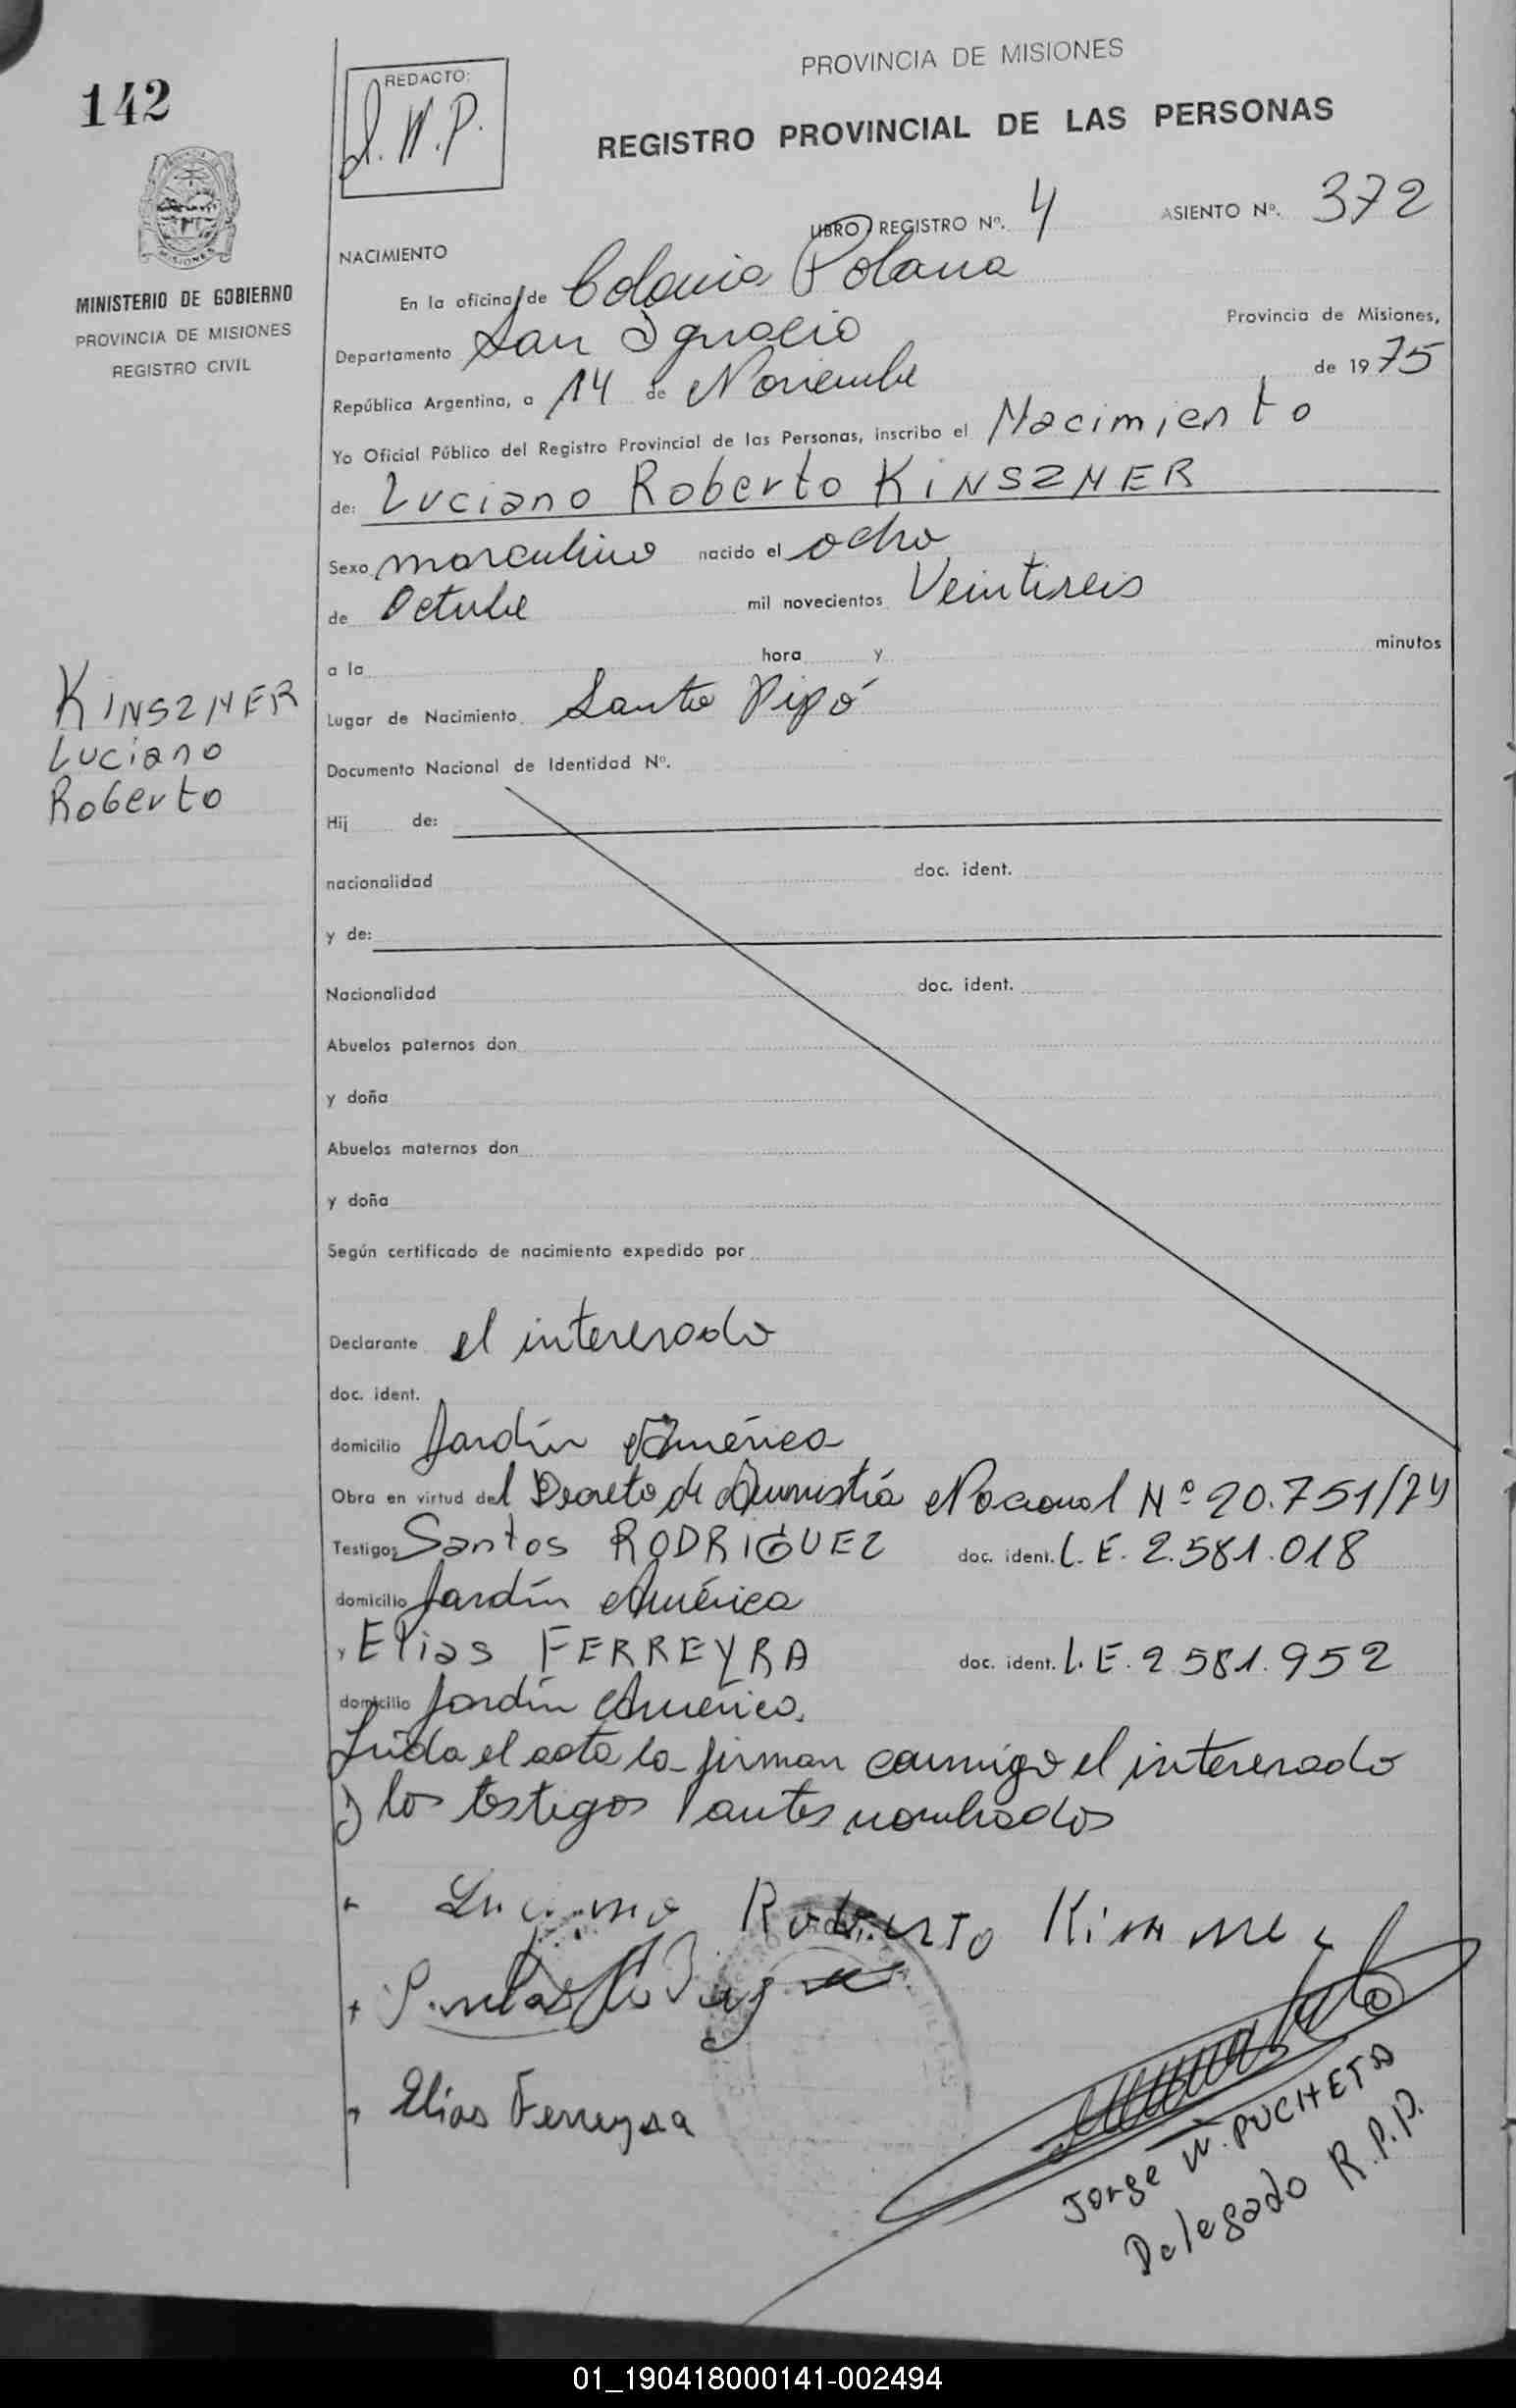 142
REDACTO:
J. W. P.
PROVINCIA DE MISIONES
REGISTRO PROVINCIAL DE LAS PERSONAS
LIBRO / REGISTRO Nº. 4 ASIENTO Nº. 372
MINISTERIO DE GOBIERNO
PROVINCIA DE MISIONES
REGISTRO CIVIL
NACIMIENTO
En la oficina de Colonia Polana
Departamento San Ignacio Provincia de Misiones,
República Argentina, a 14 de Noviembre de 1975
Yo Oficial Público del Registro Provincial de las Personas, inscribo el Nacimiento
de: Luciano Roberto KINSZNER
Sexo masculino nacido el ocho
de Octubre mil novecientos Veintiseis
a la hora y minutos
KINSZNER
Luciano
Roberto
Lugar de Nacimiento Santo Pipó
Documento Nacional de Identidad Nº.
Hij de:
nacionalidad doc. ident.
y de:
Nacionalidad doc. ident.
Abuelos paternos don
y doña
Abuelos maternos don
y doña
Según certificado de nacimiento expedido por
Declarante el interesado
doc. ident.
domicilio Jardín América
Obra en virtud del Decreto de Amnistía Nacional Nº 20.751/74
Testigos Santos RODRIGUEZ doc. ident. L. E. 2.581.018
domicilio Jardín América
y Elias FERREYRA doc. ident. L. E. 2.581.952
domicilio Jardín América.
Leída el acta la firman conmigo el interesado
y los testigos antes nombrados
Luciano Roberto
Elias Ferreyra
Jorge W. PUCHETA
Delegado R.P.P.
01_190418000141-002494